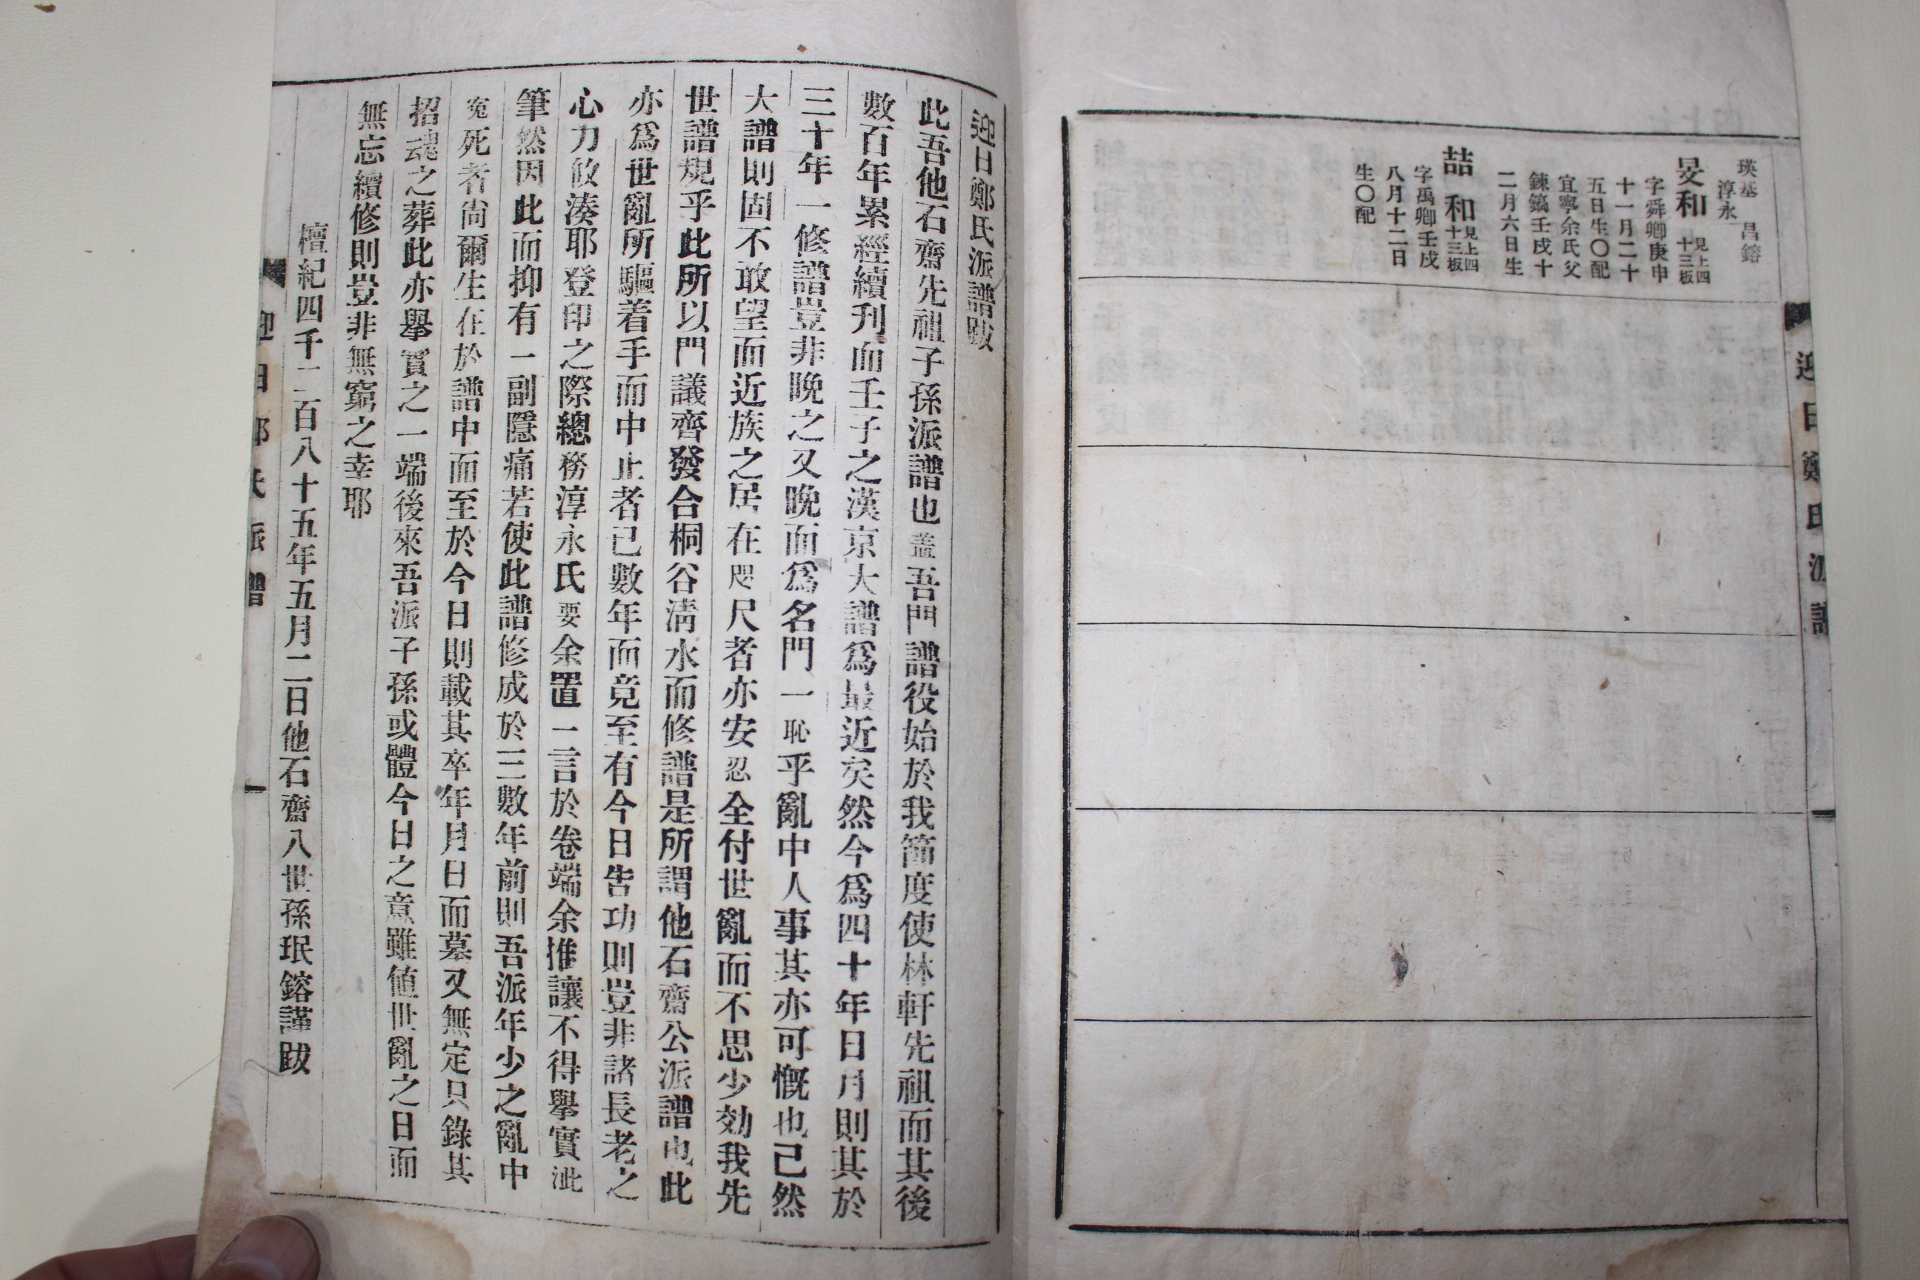 瑛基 昌鎔
淳永
旻和 見上四十三板
字舜卿庚申
十一月二十
五日生〇配
宜寧余氏父
鍊鎬壬戌十
二月六日生
喆和 見上四十三板
字禹卿壬戌
八月十二日
生〇配
迎日鄭氏派譜
迎日鄭氏派譜跋
此吾他石齋先祖子孫派譜也盖吾門譜役始於我節度使林軒先祖而其後
數百年累經續刊而壬子之漢京大譜爲最近矣然今爲四十年日月則其於
三十年一修譜豈非晩之又晩而爲名門一恥乎亂中人事其亦可慨也已然
大譜則固不敢望而近族之居在咫尺者亦安忍全付世亂而不思少効我先
世譜規乎此所以門議齊發合桐谷淸水而修譜是所謂他石齋公派譜也此
亦爲世亂所驅着手而中止者已數年而竟至有今日告功則豈非諸長老之
心力攸湊耶登印之際總務淳永氏要余置一言於卷端余推讓不得擧實泚
筆然因此而抑有一副隱痛若使此譜修成於三數年前則吾派年少之亂中
寃死者尙爾生在於譜中而至於今日則載其卒年月日而墓又無定只錄其
招魂之葬此亦擧實之一端後來吾派子孫或體今日之意雖値世亂之日而
無忘續修則豈非無窮之幸耶
檀紀四千二百八十五年五月二日他石齋八世孫珉鎔謹跋
迎日鄭氏派譜